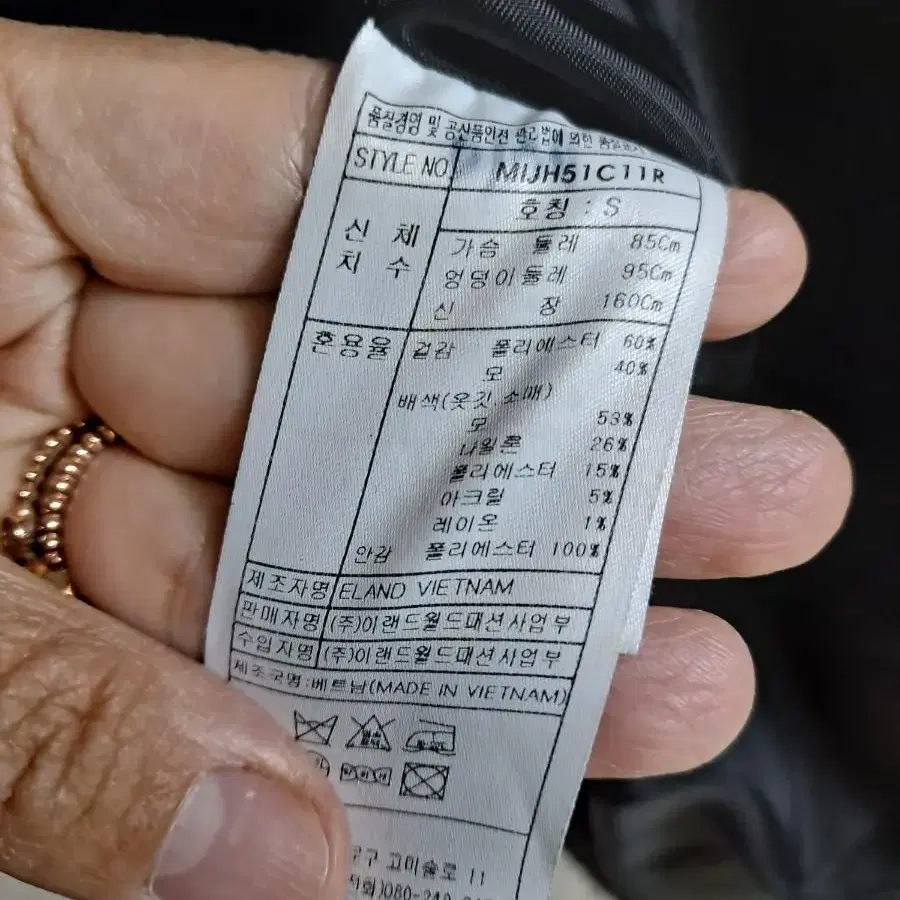 품질경영 및 공산품안전 관리법에 의한 품질표시
STYLE NO MIJH51C11R
호칭 : S
신체 치수
가슴 둘레 85Cm
엉덩이둘레 95Cm
신 장 160Cm
혼용율 겉감 폴리에스터 60%
모 40%
배색(옷깃.소매)
모 53%
나일론 26%
폴리에스터 15%
아크릴 5%
레이온 1%
안감 폴리에스터 100%
제조자명 ELAND VIETNAM
판매자명 (주)이랜드월드패션사업부
수입자명 (주)이랜드월드패션사업부
제조국명:베트남(MADE IN VIETNAM)
고미술로 11
080-240